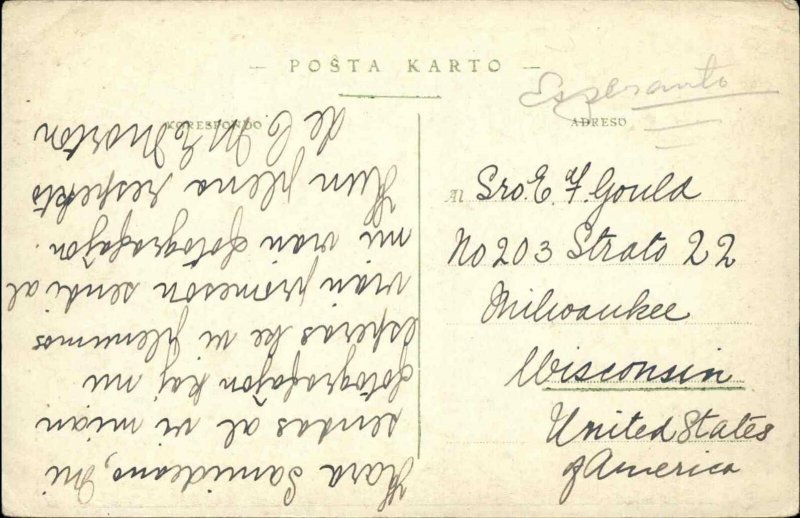 — POŜTA KARTO —
Esperanto
KORESPONDO
Kara Samideano, Mi
sendas al vi mian
fotografaĵon kaj mi
esperas ke vi plenumos
vian promeson sendi al
mi vian fotografaĵon.
Kun plena respekto
de C. M. E. Morton
ADRESO
Al Sro. E. F. Gould
No 203 Strato 22
Milwaukee
Wisconsin
United States
of America